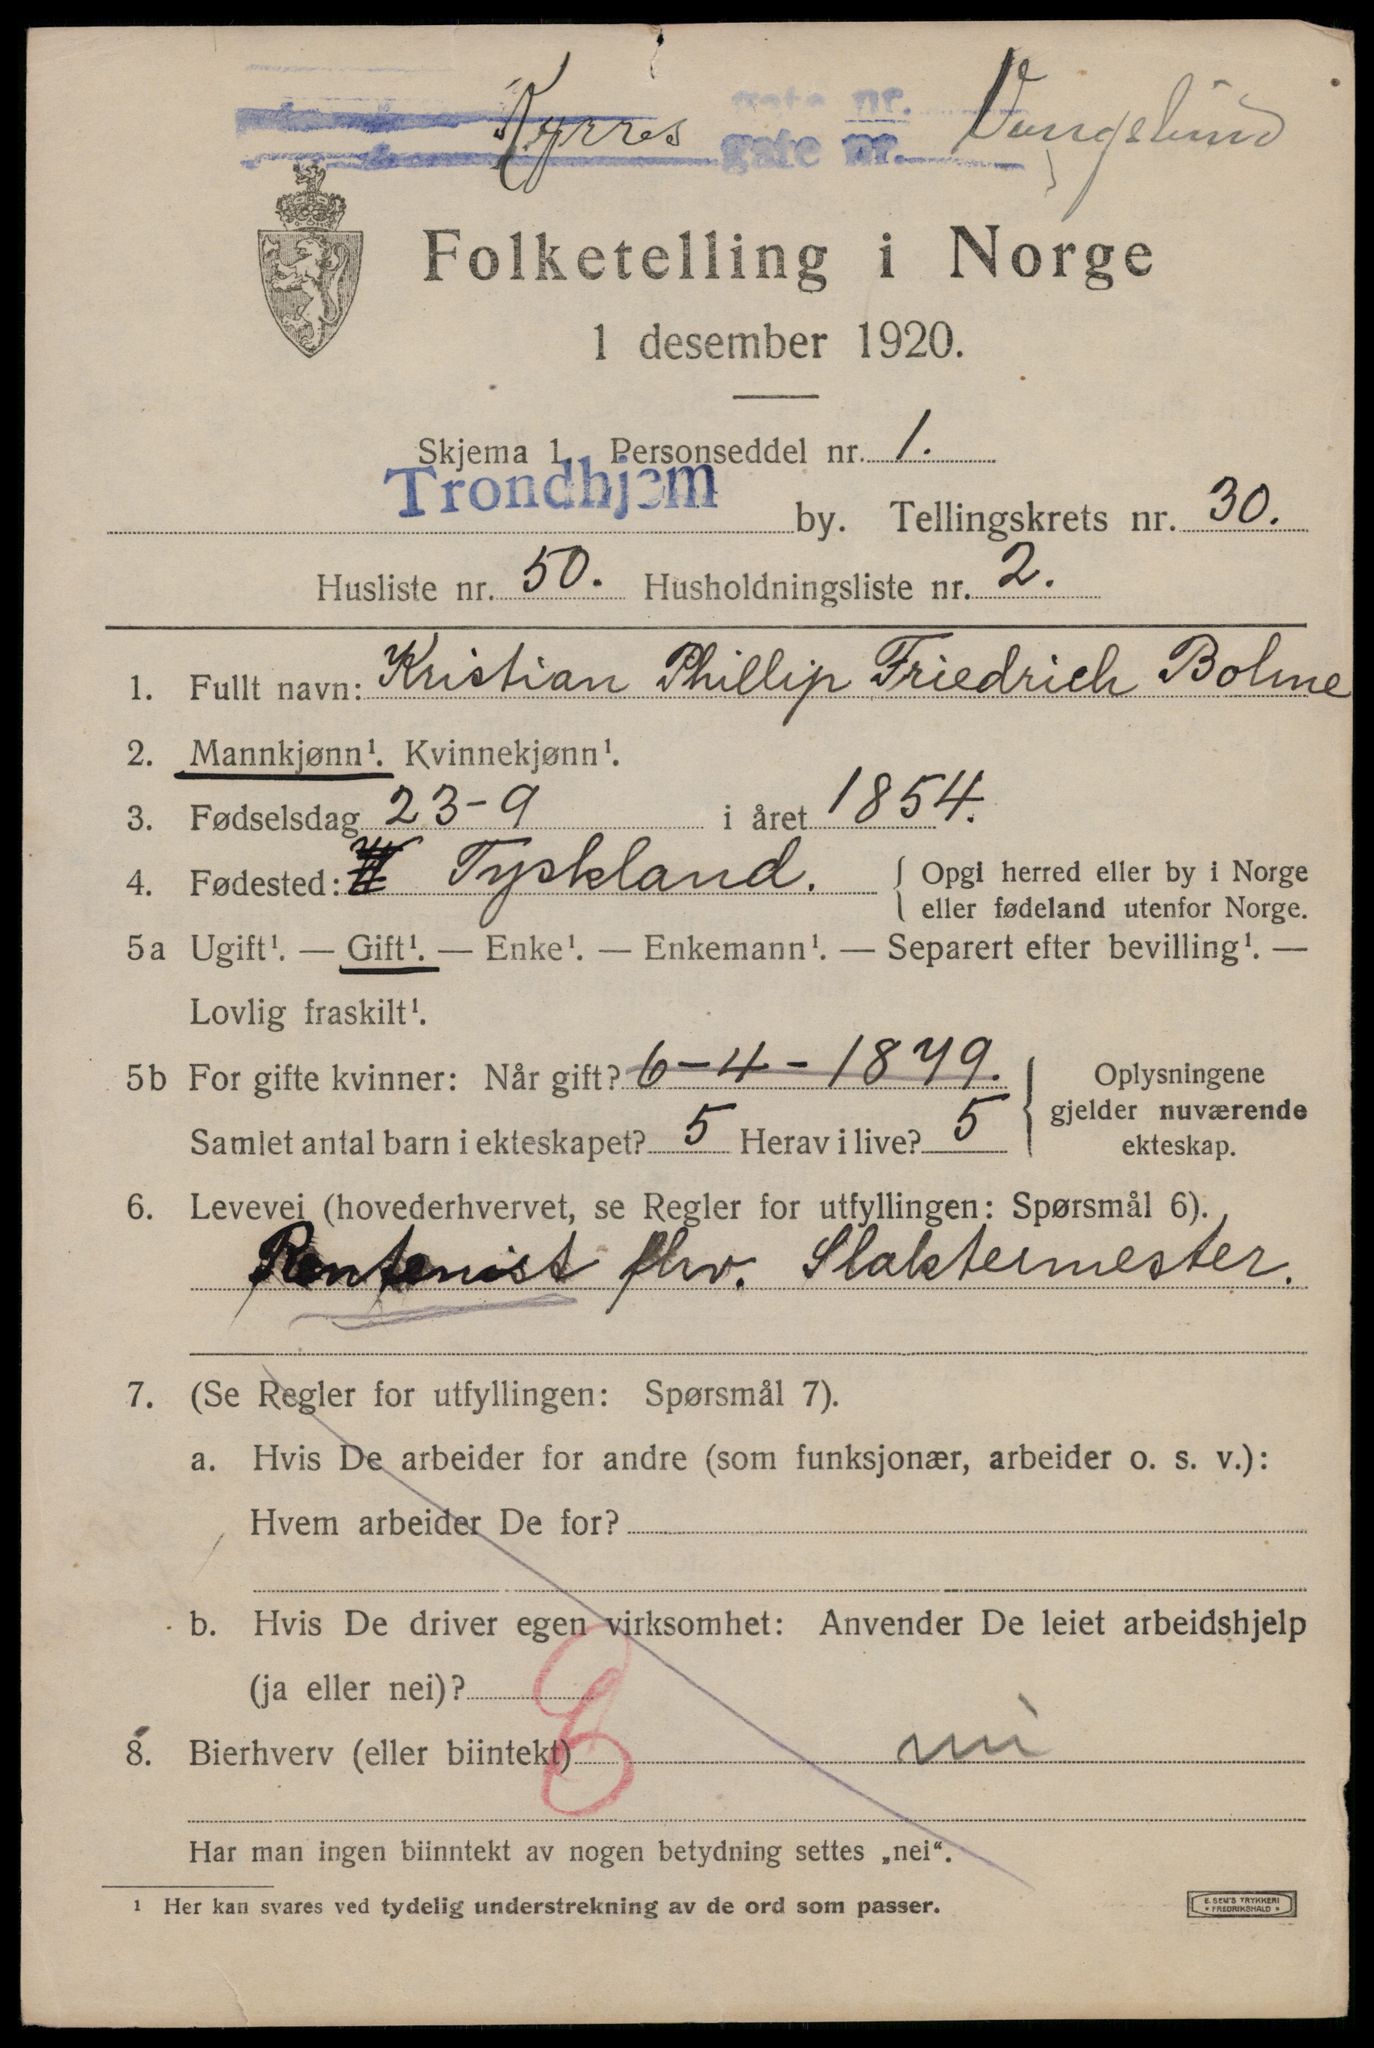 gate nr.
Kyrres gate nr. Vangslund
Folketelling i Norge
1 desember 1920.
Skjema 1 Personseddel nr. 1.
Trondhjem by. Tellingskrets nr. 30.
Husliste nr. 50. Husholdningsliste nr. 2.
1. Fullt navn: Kristian Phillip Friedrich Bohne
2. Mannkjønn¹. Kvinnekjønn¹.
3. Fødselsdag 23-9 i året 1854.
4. Fødested: Tyskland. { Opgi herred eller by i Norge
eller fødeland utenfor Norge.
5a Ugift¹. — Gift¹. — Enke¹. — Enkemann¹. — Separert efter bevilling¹. —
Lovlig fraskilt¹.
5b For gifte kvinner: Når gift? 6-4-1879. { Oplysningene
gjelder nuværende
ekteskap.
Samlet antal barn i ekteskapet? 5 Herav i live? 5
6. Levevei (hovederhvervet, se Regler for utfyllingen: Spørsmål 6).
Rentenist fhv. Slaktermester.
7. (Se Regler for utfyllingen: Spørsmål 7).
a. Hvis De arbeider for andre (som funksjonær, arbeider o. s. v.):
Hvem arbeider De for?
b. Hvis De driver egen virksomhet: Anvender De leiet arbeidshjelp
(ja eller nei)?
8. Bierhverv (eller biintekt) nei
Har man ingen biinntekt av nogen betydning settes „nei“.
¹ Her kan svares ved tydelig understrekning av de ord som passer.
E. SEM'S TRYKKERI
• FREDRIKSHALD •